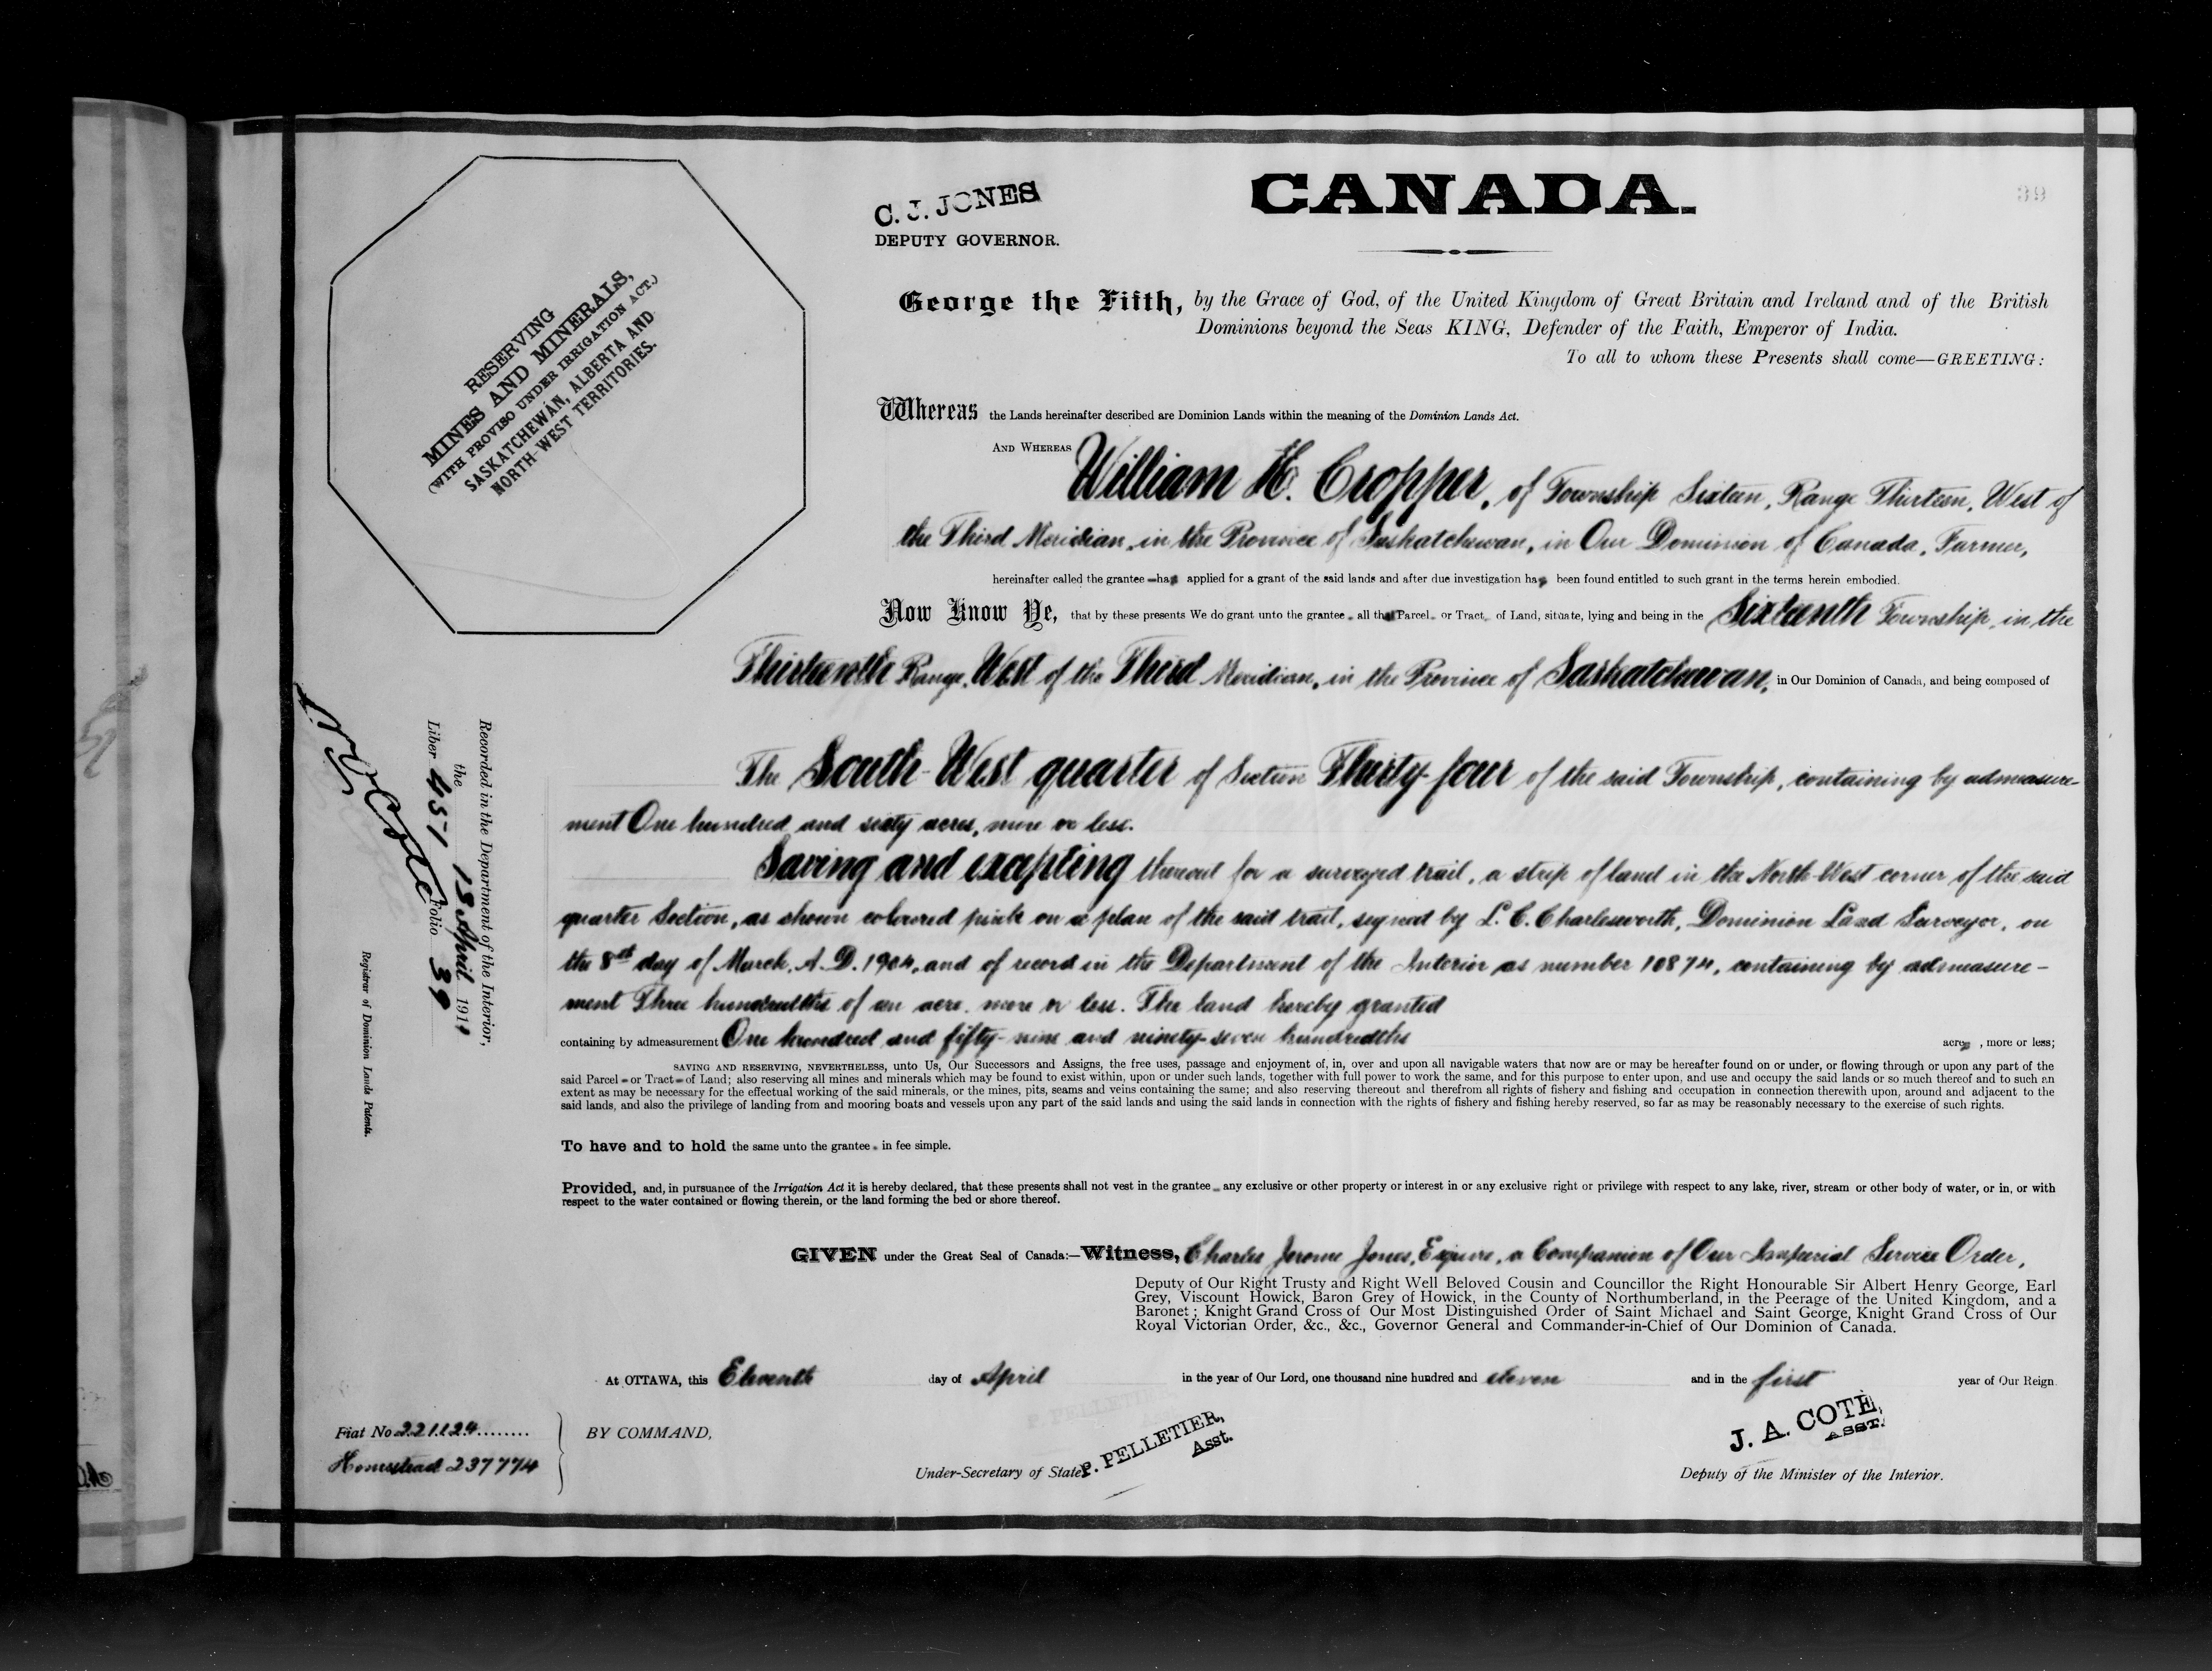 C. J. JONES
DEPUTY GOVERNOR.
CANADA.
39
RESERVING
MINES AND MINERALS,
(WITH PROVISO UNDER IRRIGATION ACT.)
SASKATCHEWAN, ALBERTA AND
NORTH-WEST TERRITORIES.
George the Fifth, by the Grace of God, of the United Kingdom of Great Britain and Ireland and of the British
Dominions beyond the Seas KING, Defender of the Faith, Emperor of India.
To all to whom these Presents shall come—GREETING:
Whereas the Lands hereinafter described are Dominion Lands within the meaning of the Dominion Lands Act.
AND WHEREAS William H. Cropper, of Township Sixteen, Range Thirteen, West of
the Third Meridian, in the Province of Saskatchewan, in Our Dominion of Canada, Farmer,
hereinafter called the grantee has applied for a grant of the said lands and after due investigation has been found entitled to such grant in the terms herein embodied.
Now Know Ye, that by these presents We do grant unto the grantee, all that Parcel or Tract of Land, situate, lying and being in the Sixteenth Township, in the
Thirteenth Range, West of the Third Meridian, in the Province of Saskatchewan, in Our Dominion of Canada, and being composed of
The South-West quarter of Section Thirty-four of the said Township, containing by admeasure-
ment One hundred and sixty acres, more or less.
Saving and excepting thereout for a surveyed trail, a strip of land in the North-West corner of the said
quarter Section, as shown coloured pink on a plan of the said trail, signed by L. C. Charlesworth, Dominion Land Surveyor, on
the 8th day of March, A. D. 1904, and of record in the Department of the Interior as number 10874, containing by admeasure-
ment Three hundredths of an acre, more or less. The land hereby granted
containing by admeasurement One hundred and fifty-nine and ninety-seven hundredths acres, more or less;
SAVING AND RESERVING, NEVERTHELESS, unto Us, Our Successors and Assigns, the free uses, passage and enjoyment of, in, over and upon all navigable waters that now are or may be hereafter found on or under, or flowing through or upon any part of the
said Parcel or Tract of Land; also reserving all mines and minerals which may be found to exist within, upon or under such lands, together with full power to work the same, and for this purpose to enter upon, and use and occupy the said lands or so much thereof and to such an
extent as may be necessary for the effectual working of the said minerals, or the mines, pits, seams and veins containing the same; and also reserving thereout and therefrom all rights of fishery and fishing and occupation in connection therewith upon, around and adjacent to the
said lands, and also the privilege of landing from and mooring boats and vessels upon any part of the said lands and using the said lands in connection with the rights of fishery and fishing hereby reserved, so far as may be reasonably necessary to the exercise of such rights.
To have and to hold the same unto the grantee, in fee simple.
Provided, and, in pursuance of the Irrigation Act it is hereby declared, that these presents shall not vest in the grantee any exclusive or other property or interest in or any exclusive right or privilege with respect to any lake, river, stream or other body of water, or in, or with
respect to the water contained or flowing therein, or the land forming the bed or shore thereof.
GIVEN under the Great Seal of Canada:—Witness, Charles Jerome Jones, Esquire, a Companion of Our Imperial Service Order,
Deputy of Our Right Trusty and Right Well Beloved Cousin and Councillor the Right Honourable Sir Albert Henry George, Earl
Grey, Viscount Howick, Baron Grey of Howick, in the County of Northumberland, in the Peerage of the United Kingdom, and a
Baronet; Knight Grand Cross of Our Most Distinguished Order of Saint Michael and Saint George, Knight Grand Cross of Our
Royal Victorian Order, &c., &c., Governor General and Commander-in-Chief of Our Dominion of Canada.
At OTTAWA, this Eleventh day of April in the year of Our Lord, one thousand nine hundred and eleven and in the first year of Our Reign.
Fiat No. 221124
Homestead 237774
BY COMMAND,
P. PELLETIER,
Asst.
Under-Secretary of State.
J. A. COTE,
ASST.
Deputy of the Minister of the Interior.
Recorded in the Department of the Interior,
the 18 April 1911
Liber 451 Folio 39
N. O. Coté
Registrar of Dominion Lands Patents.